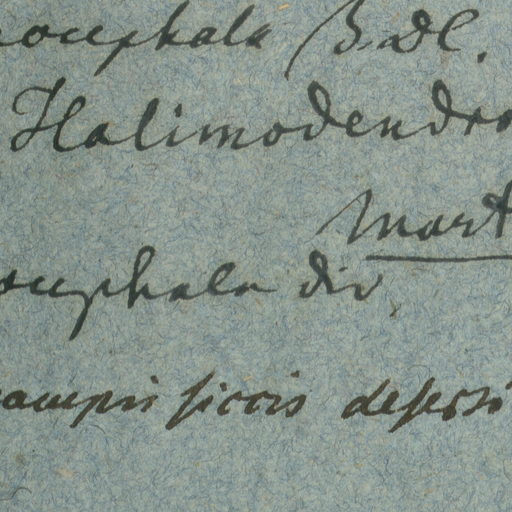 ocephala β. DC.
Halimodendro
Mart
ocephala div
campis siccis deserti